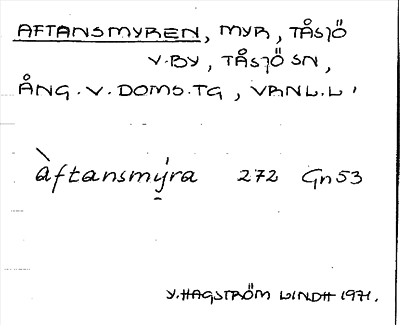 AFTANSMYREN, MYR, TÅSJÖ
V.BY, TÅSJÖ SN,
ÅNG.V.DOMS.TG, VRNL.L.
àftansmý̱ra 272 Gn53
Y.HAGSTRÖM LINDH 1971.